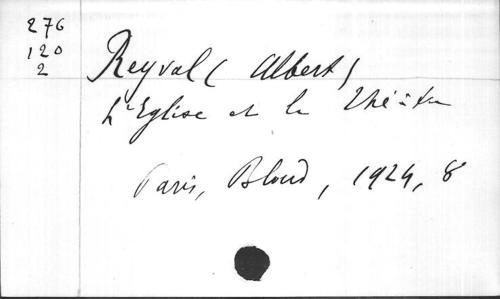 276
120
2
Reyval (Albert)
L'Eglise et le Théâtre
Paris, Bloud, 1924, 8